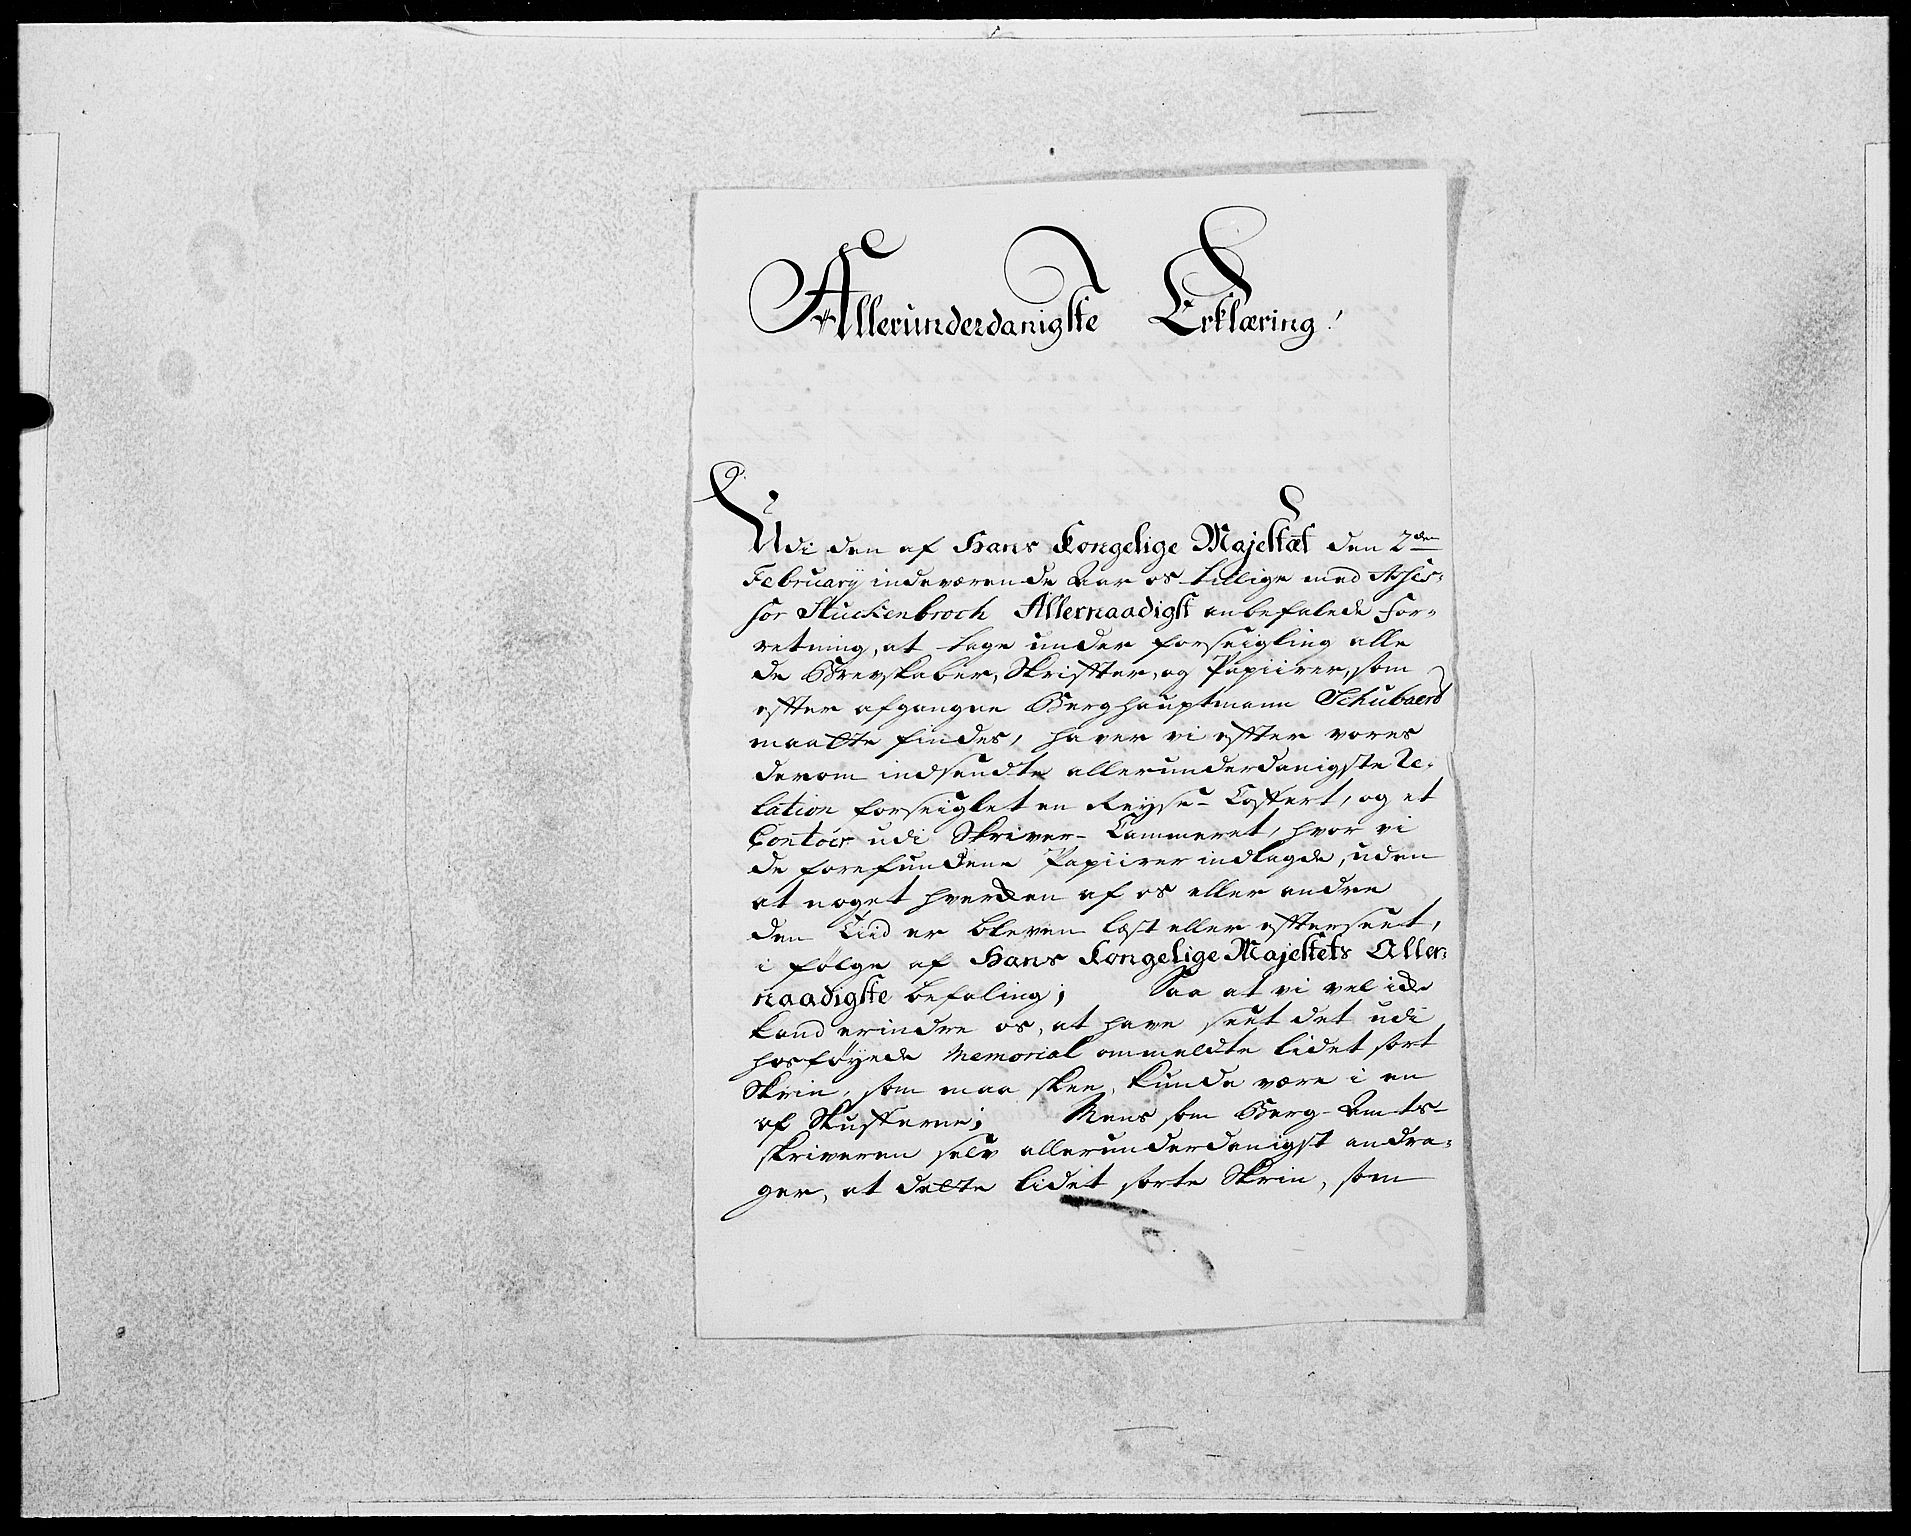 Allerunderdanigste Erklæring!
Udi den af Hans Kongelige Majestæt den 2den
February indeværende Aar os tillige med Asses-
sor Stuckenbroch Allernaadigst anbefalede for-
retning, at tage under forseigling alle
de Brevskaber, Skriffter, og Papiirer, som
effter afgangne Berghauptmann Schubaert
maatte findes, haver vi effter vores
derom indsendte allerunderdanigste Re-
lation forseiglet en Reyse-Coffert, og et
Contoir udi Skriver-Cammeret, hvor vi
de forefundene Papiirer indlagde, uden
at noget hverken af os eller andre
den Tiid er bleven læst eller effterseet,
i følge af Hans Kongelige Majestets Aller-
naadigste befaling; Saa at vi vel icke
kand erindre os, at have seet det udi
hosføyede Memorial ommeldte lidet sort
Skrin, som maa skee, kunde være i en
af Skufferne; Mens som Berg-Amts-
skriveren selv allerunderdanigst andra-
ger, at dette lidet sorte Skrin, som